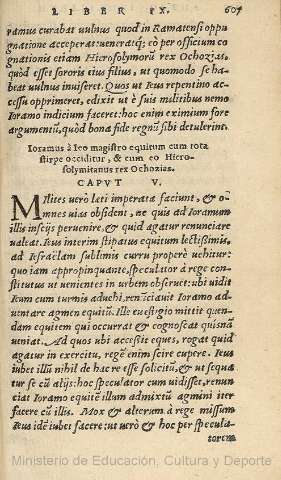 LIBER IX. 607
ramus curabat uulnus quod in Ramatensi oppu
gnatione acceperat: ueneratq́; eò per officium co
gnationis etiam Hierosolymorū rex Ochozias,
quòd esset sororis eius filius, ut quomodo se ha-
beat uulnus inuiseret. Quos ut Ieus repentino ac-
cessu opprimeret, edixit ut è suis militibus nemo
Ioramo indicium faceret: hoc enim eximium fore
argumentū, quòd bona fide regnū sibi detulerint.
Ioramus à Ieo magistro equitum cum tota
stirpe occiditur, & cum eo Hiero-
solymitanus rex Ochozias.
CAPVT V.
Milites uerò leti imperata faciunt, & o-
mnes uias obsident, ne quis ad Ioramum
illis inscijs perueniret, & quid agatur renunciare
ualeat. Ieus interim stipatus equitum lectissimis,
ad Iesraëlam sublimis curru properè uehitur:
quo iam appropinquante, speculator à rege con-
stitutus ut uenientes in urbem obseruet: ubi uidit
Ieum cum turmis aduehi, renūciauit Ioramo ad-
uentare agmen equitū. Ille euestigio mittit quen-
dam equitem qui occurrat & cognoscat quisnā
ueniat. Ad quos ubi accessit eques, rogat quid
agatur in exercitu, regē enim scire cupere. Ieus
iubet illū nihil de hac re esse solicitū, & ut sequa
tur se cū alijs: hoc speculator cum uidisset, renun
ciat Ioramo equitē illum admixtū agmini iter
facere cū illis. Mox & alterum à rege missum
Ieus idē iubet facere: ut uerò & hoc per specula
torem
Ministerio de Educación, Cultura y Deporte